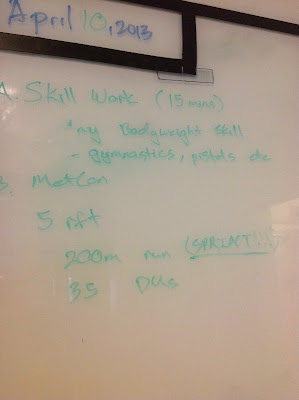 April 10, 2013
A. Skill Work (15 mins)
Any Bodyweight skill
- gymnastics, pistols etc
B. MetCon
5 rft
200m run (SPRINT!!)
35 DUs